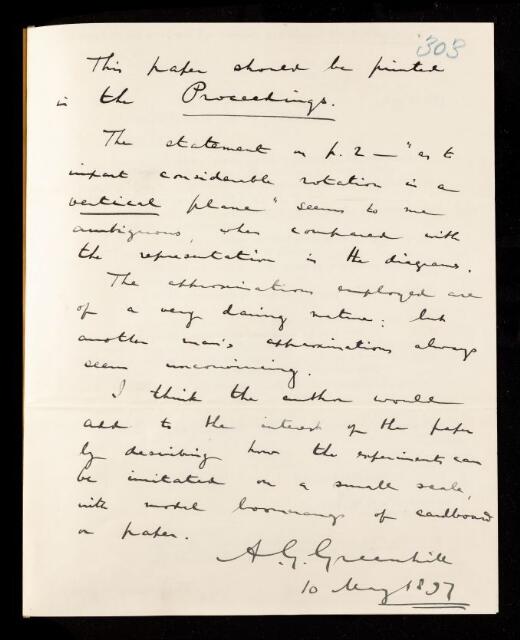 303
This paper should be printed
in the Proceedings.
The statement on p. 2 — "as to
impart considerable rotation in a
vertical plane" seems to me
ambiguous, when compared with
the representation in the diagrams.
The approximations employed are
of a very daring nature: but
another man's approximations always
seem unconvincing.
I think the author would
add to the interest of the paper
by describing how the experiments can
be imitated on a small scale,
with model boomerangs of cardboard
or paper.
A. G. Greenhill
10 May 1897